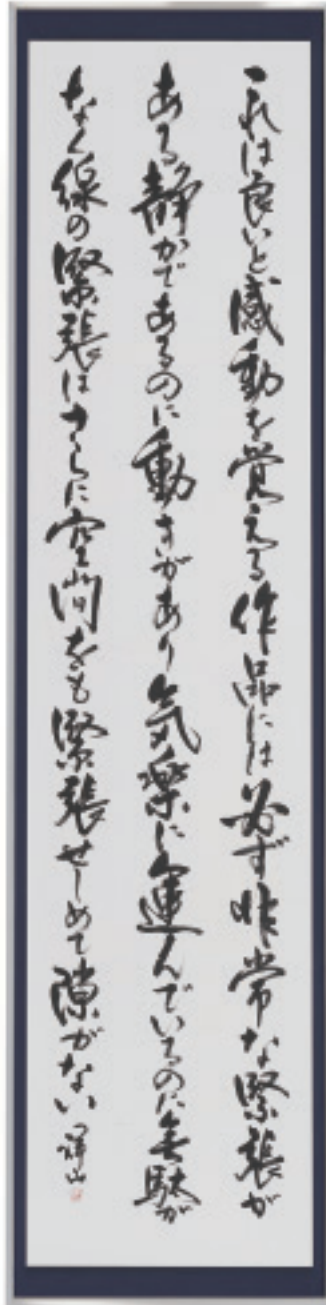 これは良いと感動を覚える作品には必ず非常な緊張が
ある静かであるのに動きがあり気楽に運んでいるのに無駄が
なく線の緊張はさらに空間をも緊張せしめて隙がない